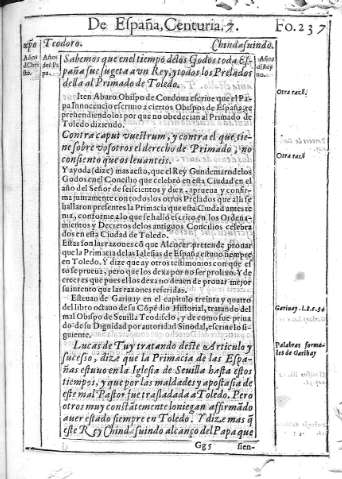 De España, Centuria. 7. Fo. 237
xpo Teodoro. Chindasuindo.
Años
Años
Sabemos que en el tiempo de los Godos toda Es-
paña fue sugeta a vn Rey, y todos los Prelados
della al Primado de Toledo.
Iten Abaro Obispo de Cordoua escriue que el Pa-
pa Innocencio escriuio a ciertos Obispos de España re-
prehendiendolos por que no obedecian al Primado de
Toledo diziendo.
Otra razõ.
Contra caput vuestrum, y contra el que tie-
ne sobre vosotros el derecho de Primado, no
consiento que os leuanteis.
Otra razõ
Y ayuda (dize) mas a esto, que el Rey Gundemaro de los
Godos en el Concilio que celebró en esta Ciudad en el
año del Señor de seiscientos y diez, aprueua y confir-
ma juntamente con todos los otros Prelados que alli se
hallaron presentes la Primacia que esta Ciudad antes te
nia, conforme a lo que se halló escrito en los Ordena-
mientos y Decretos de los antiguos Concilios celebra-
dos en esta Ciudad de Toledo.
Estas son las razones cõ que Alcocer pretende prouar
que la Primacia de las Iglesias de España estuuo siempre
en Toledo. Y dize que ay otros testimonios con que es-
to se prueua, pero que los dexa por no ser prolixo. Y de
creer es que pues el los dexa no deuen de prouar mejor
su intento que las razones referidas.
Esteuan de Gariuay en el capitulo treinta y quatro
del libro octauo de su Cõpẽdio Historial, tratando del
mal Obispo de Seuilla Teodisclo, y de como fue priua
do de su Dignidad por autoridad Sinodal, escriue lo si-
guiente.
Gariuay. l. 8. c. 34
Lucas de Tuy tratando deste Articulo y
sucesso, dize que la Primacia de las Espa-
ñas estuuo en la Iglesia de Seuilla hasta estos
tiempos, y que por las maldades y apostasia de
este mal Pastor fue trasladada a Toledo. Pero
otros muy constãtemente lo niegan affirmãdo
auer estado siempre en Toledo. Y dize mas q̃
este Rey Chindasuindo alcançó del Papa que
Palabras forma-
les de Garibay
Gg5 sien-